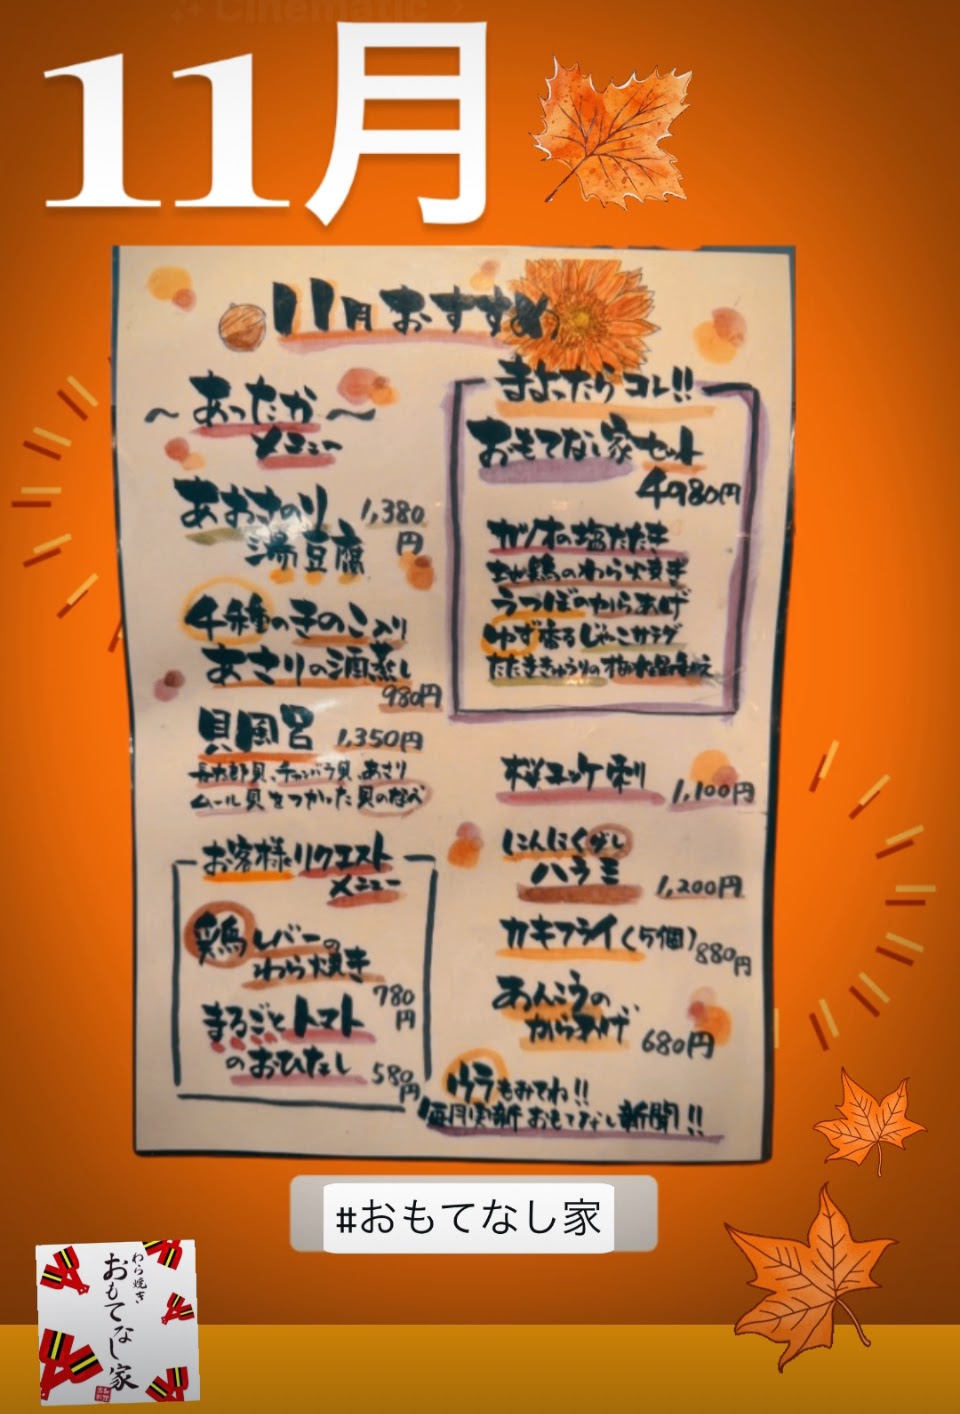 Cinematic
11月
11月おすすめ
～あったか～
メニュー
あおさのり
湯豆腐
1,380
円
千種のきのこ入り
あさりの酒蒸し
980円
貝風呂 1,350円
長太郎貝、チャンバラ貝、あさり
ムール貝をつかった貝のなべ
お客様リクエスト
メニュー
鶏レバーの
わら焼き
780
円
まるごとトマト
のおひたし
580
円
まよったらコレ!!
おもてなし家セット
4980円
カツオの塩たたき
土佐鶏のわら焼き
うつぼのからあげ
ゆず香るじゃこサラダ
たたききゅうりの梅水晶和え
桜ユッケ刺
1,100円
にんにく
ハラミ
1,200円
カキフライ(5個)
880円
あんこうの
からあげ
680円
ウラもみてね!!
毎月更新おもてなし新聞!!
#おもてなし家
わら焼き
おもてなし家